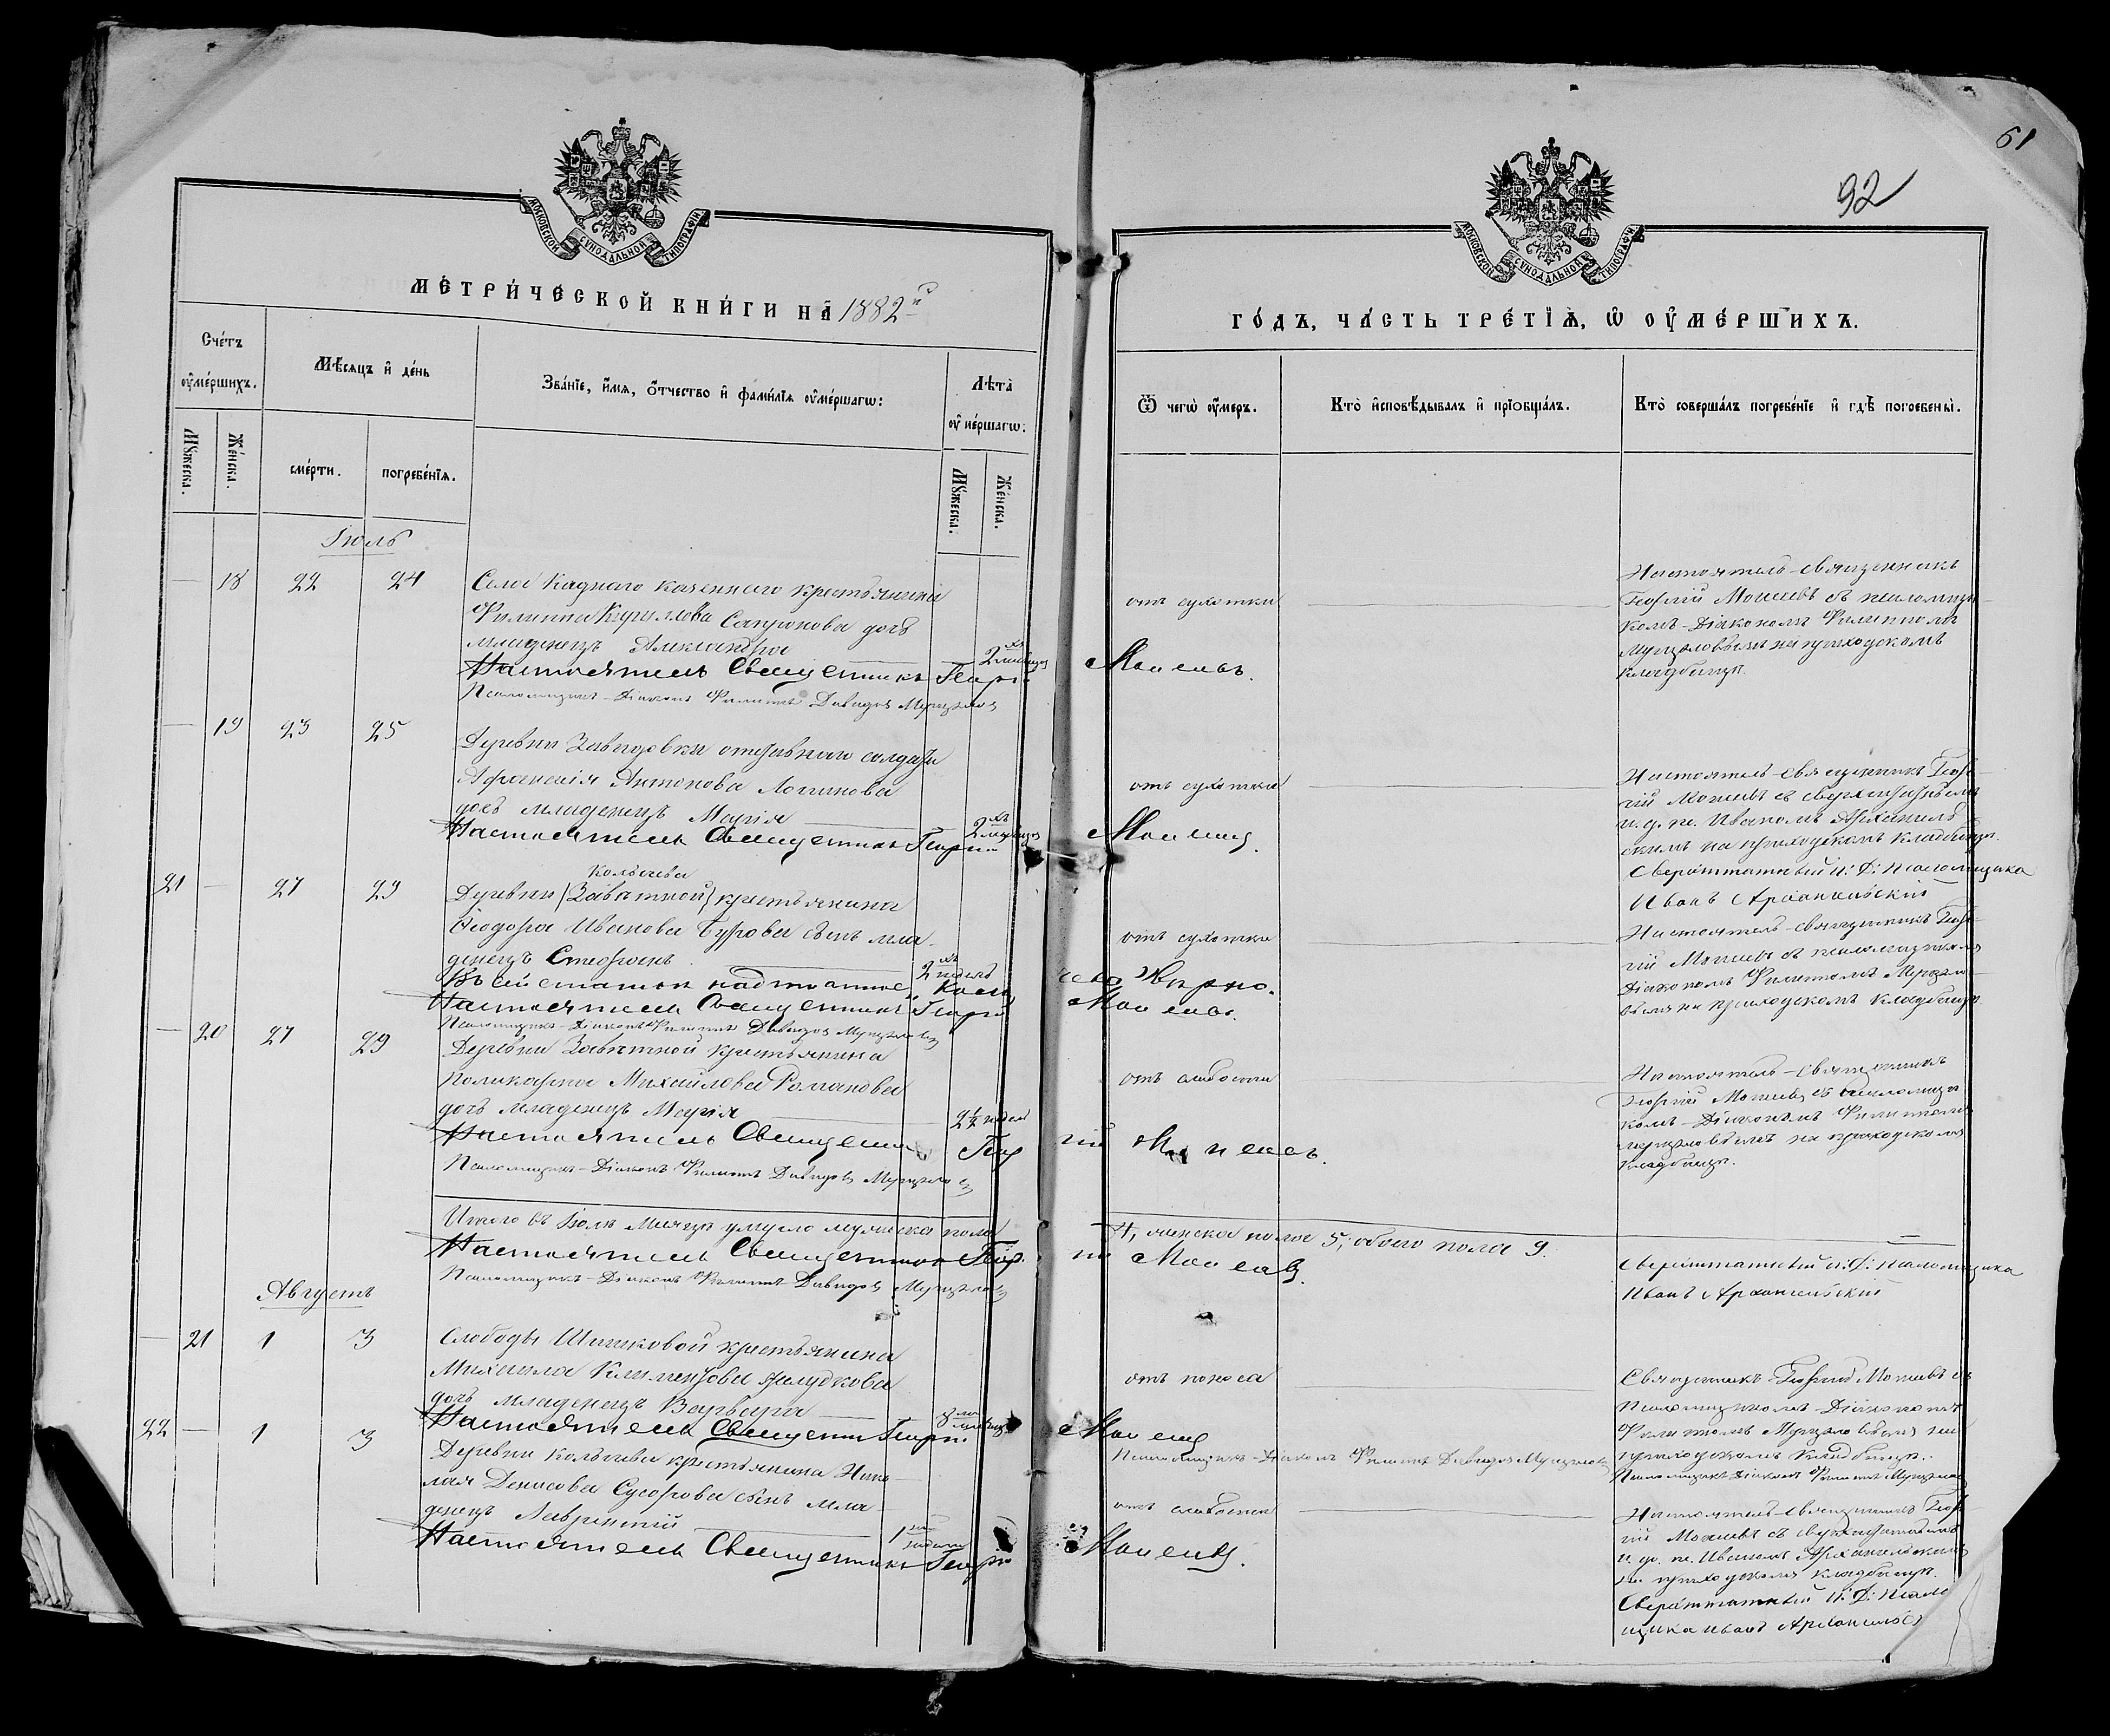 61
92
МОСКОВСКОЙ СѴНОДАЛЬНОЙ ТИПОГРАФІИ
МОСКОВСКОЙ СѴНОДАЛЬНОЙ ТИПОГРАФІИ
МЕТРИЧЕСКОЙ КНИГИ НА 1882й
ГОДЪ, ЧАСТЬ ТРЕТІЯ, Ѡ ОУМЕРШИХЪ.
Счетъ оумершихъ.
Мѣсяцъ и день
Званіе, имя, отчество и фамилія оумершагѡ:
Лѣта оумершагѡ:
Ѿ чегѡ оумеръ.
Кто исповѣдывалъ и пріобщалъ.
Кто совершалъ погребеніе и гдѣ погребены.
Мужеска.
Женска.
смерти.
погребенія.
Мужеска.
Женска.
Іюль
— 18 22 24
Села Каднаго казеннаго крестьянина
Филиппа Кирилова Сапронова дочь
младенецъ Александра
2хъ мѣсяцъ
Настоятель Священникъ Георгій Моисеевъ.
Псаломщикъ-Діаконъ Филиппъ Давидовъ Мерцаловъ
отъ сухотки
Настоятель-священникъ
Георгій Моисеевъ съ псаломщи-
комъ-Діакономъ Филиппомъ
Мерцаловымъ на приходскомъ
кладбищѣ.
— 19 23 25
Деревни Завидовки отставнаго солдата
Афанасія Антонова Логинова
дочь младенецъ Марія
2хъ мѣсяцовъ
Настоятель Священникъ Георгій Моисеевъ.
отъ сухотки
Настоятель-священникъ Геор-
гій Моисеевъ съ сверхштатнымъ
и. д. пс. Иваномъ Архангель-
скимъ на приходскомъ кладбищѣ.
Сверхштатный И: Д: Псаломщика
Иванъ Архангельскій
21 — 27 29
Кольчева
Деревни (Завѣтной) крестьянина
Ѳеодора Иванова Бурова сынъ мла-
денецъ Стефанъ.
2хъ недѣль
Въ сей статьи надписанное, Кольчева Вѣрно.
Настоятель Священникъ Георгій Моисеевъ.
Псаломщикъ-Діаконъ Филиппъ Давидовъ Мерцаловъ
отъ сухотки
Настоятель-священникъ Геор-
гій Моисеевъ съ псаломщикомъ
Діакономъ Филиппомъ Мерцало-
вымъ на приходскомъ кладбищѣ
— 20 27 29
Деревни Завѣтной крестьянина
Поликарпа Михайлова Романова
дочь младенецъ Марія
2½ недѣл
Настоятель Священникъ Георгій Моисеевъ.
Псаломщикъ-Діаконъ Филиппъ Давидовъ Мерцаловъ
отъ слабости
Настоятель-священникъ
Георгій Моисеевъ съ псаломщи-
комъ-Діакономъ Филиппомъ
Мерцаловымъ на приходскомъ
кладбищѣ.
Итого въ Іюлѣ мѣсяцѣ умерло мужеска пола 4, женска пола 5, обоего пола 9.
Настоятель Священникъ Георгій Моисеевъ.
Псаломщикъ-Діаконъ Филиппъ Давидовъ Мерцаловъ
Сверхштатный и: Д: псаломщика
Иванъ Архангельскій
Августъ
— 21 1 3
Слободы Шишковой крестьянина
Михаила Климентова
дочь младенецъ Варвара
Настоятель Священникъ Георгій Моисеевъ
Псаломщикъ-Діаконъ Филиппъ Давидовъ Мерцаловъ
отъ поноса
Священникъ Георгій Моисеевъ съ
Псаломщикомъ-Діакономъ
Филиппомъ Мерцаловымъ на
приходскомъ кладбищѣ.
Псаломщикъ Діаконъ Филиппъ Мерцаловъ
22 — 1 3
Деревни Кольчева крестьянина Нико-
лая Денисова Суворова сынъ мла-
денецъ Лаврентій
Настоятель Священникъ Георгій Моисеевъ.
отъ слабости
Настоятель-священникъ Геор-
гій Моисеевъ съ сверхштатнымъ
и. д. пс. Иваномъ Архангельскимъ
на приходскомъ кладбищѣ.
Сверхштатный И: Д: Псалом-
щика Иванъ Архангельск